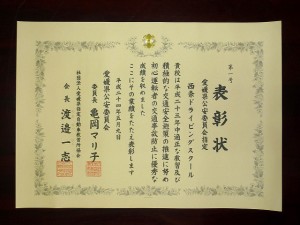 第一号
表彰状
愛媛県公安委員会指定
西条ドライビングスクール
貴校は平成二十三年中適正な教習及び
積極的な交通安全施策の推進に努め
初心運転者の交通事故防止に優秀な
成績を収めました
ここにその業績をたたえ表彰します
平成二十四年五月九日
愛媛県公安委員会
委員長 亀岡マリ子
社団法人愛媛県指定自動車教習所協会
会長 渡邉一志